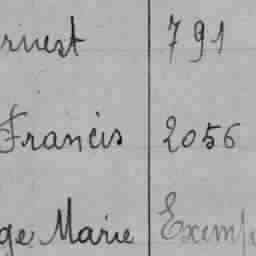 rnest 791
Francis 2056
ge Marie Exemp